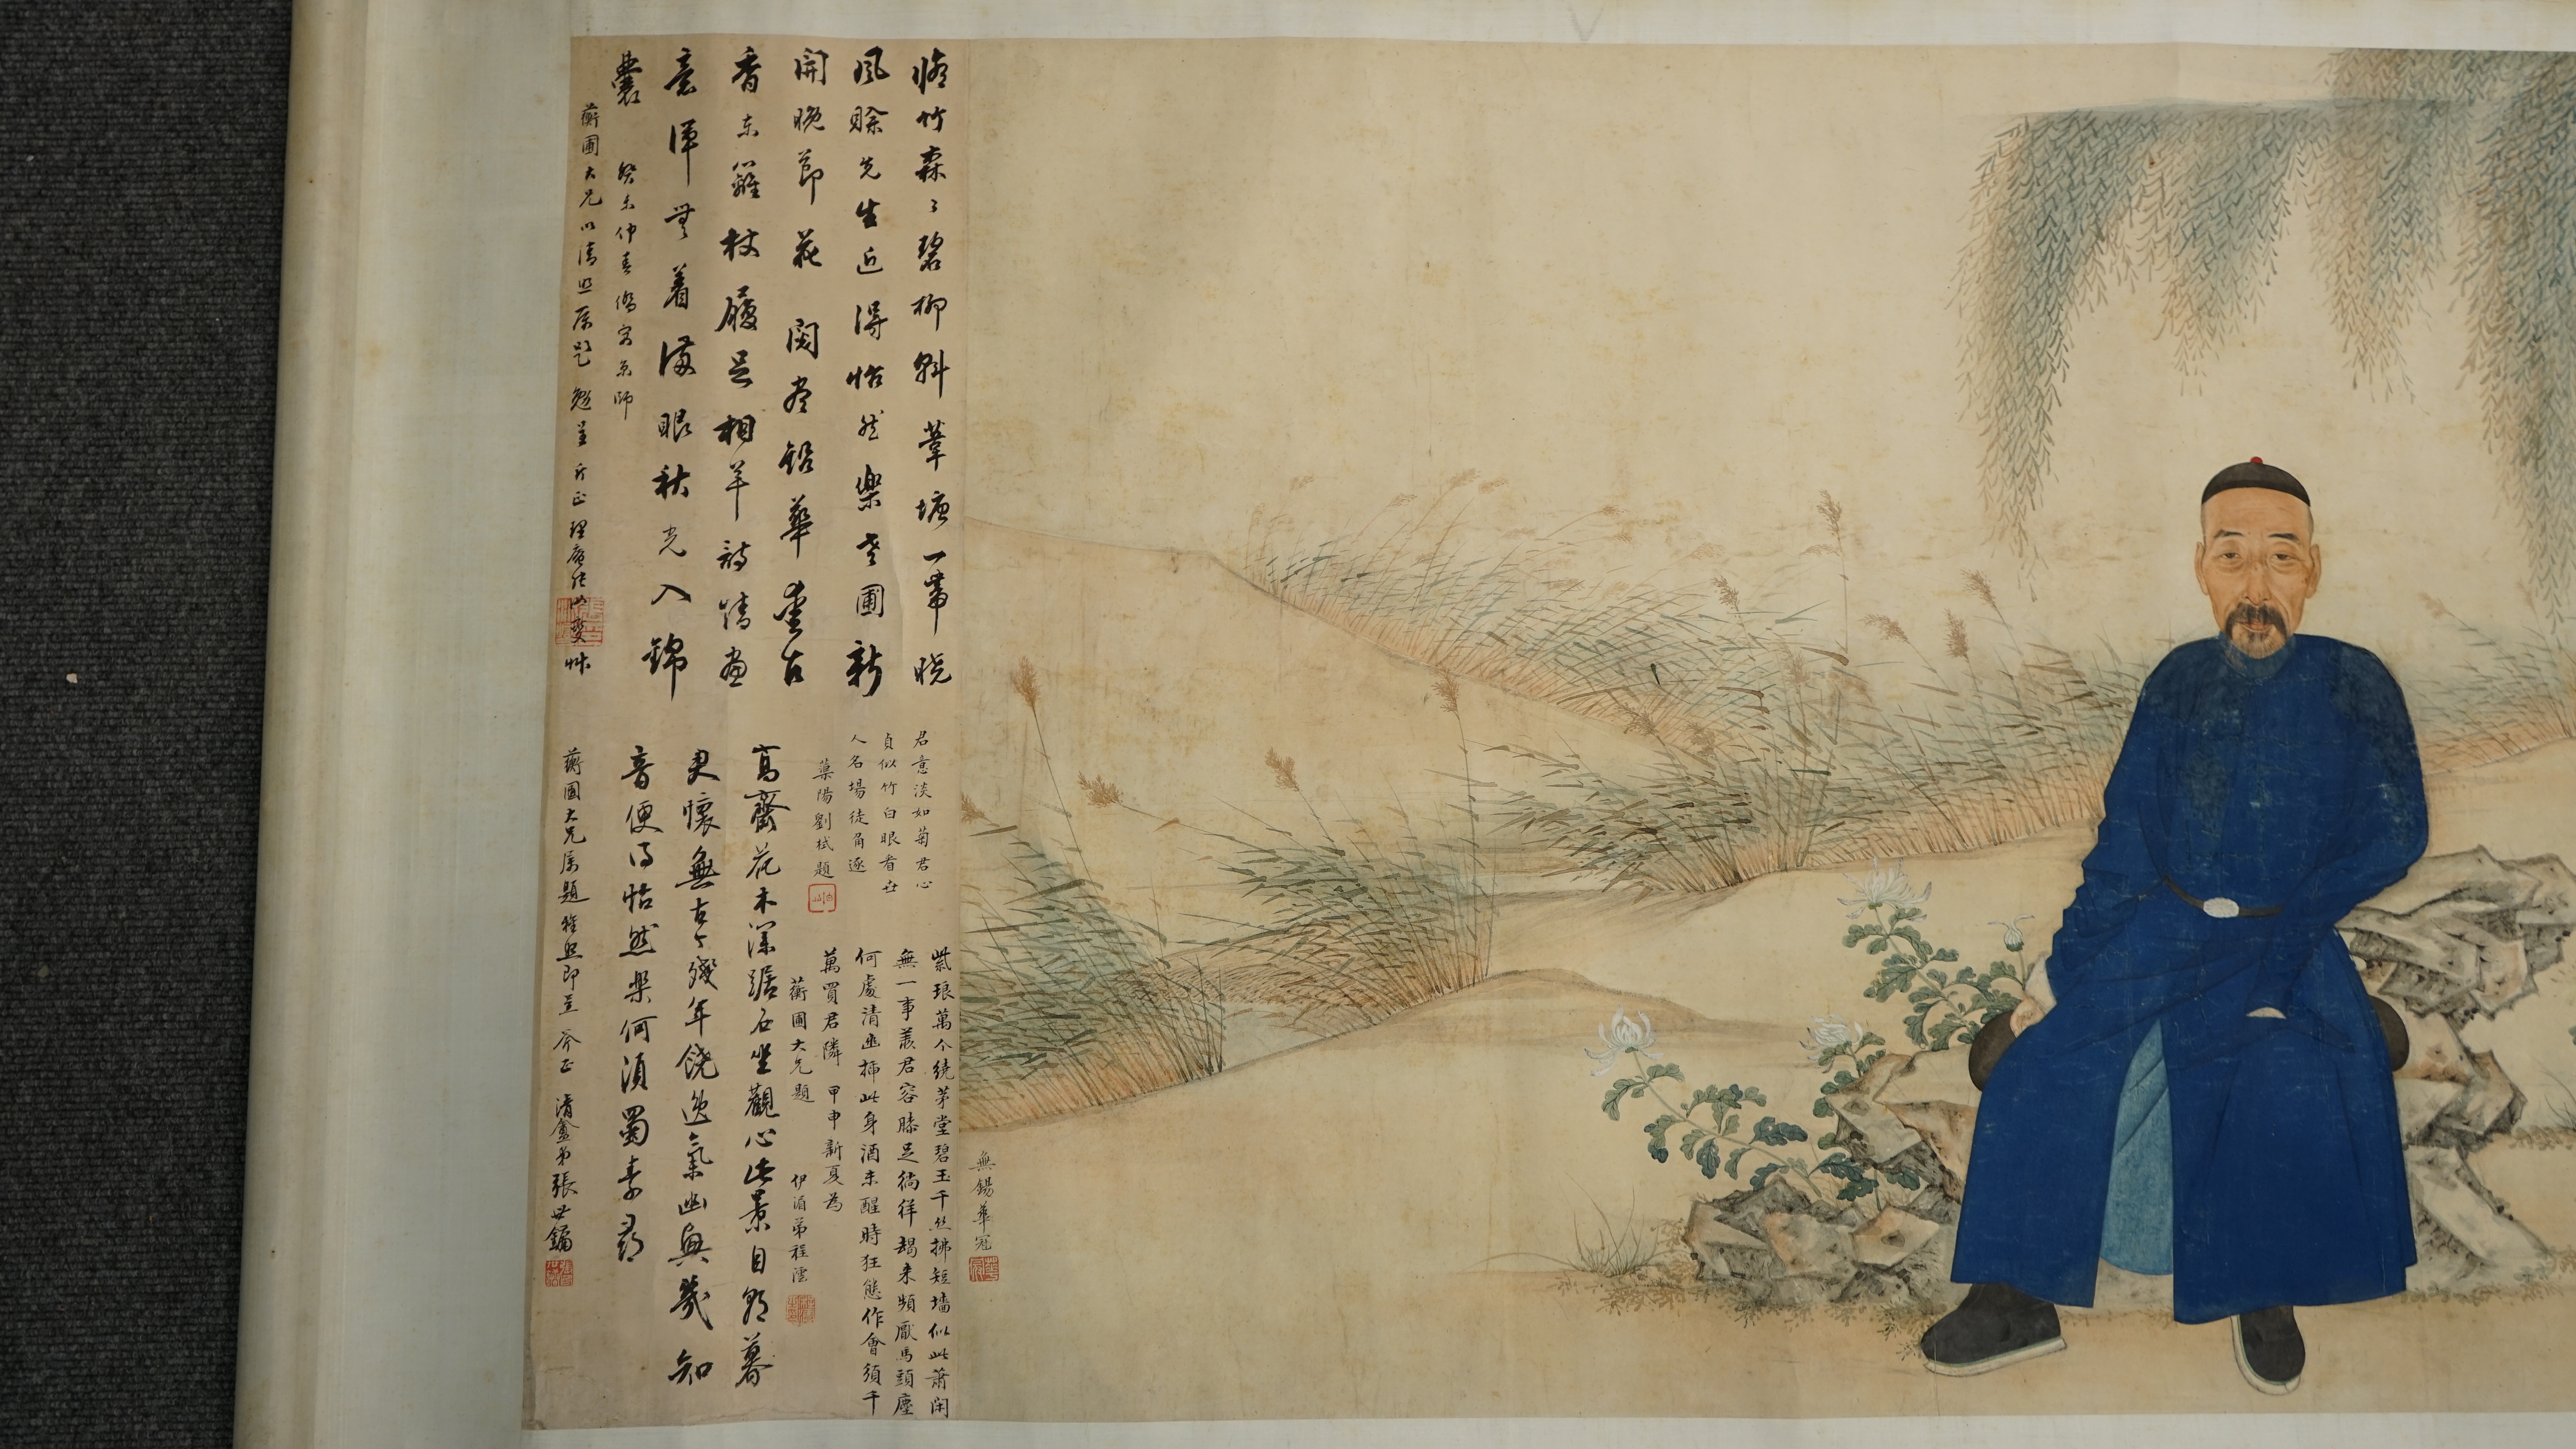 無錫華冠
脩竹森〻碧柳斜葦塘一帶晚
風賒先生近得怡然樂老圃新
開晚節花 閱盡鉛華壽古
香東籬杖履足相羊詩情畫
意渾無着滿眼秋光入錦
囊
癸未仲春僑寓京師
蘅圃大兄以清照屬題 勉呈
斤正
君意淡如菊君心
貞似竹白眼看世
人名場徒角逐
藥陽劉栻題
紫琅萬个繞茅堂碧玉千絲拂短墻似此蕭閑
無一事羨君容膝足徜徉朅來頻厭馬頭塵
何處清幽揷此身酒未醒時狂態作會須千
萬買君隣 甲申新夏為
蘅圃大兄題 伊湄弟程澐
高齋花木深踞石坐觀心此景自朝暮
更懷無古今殘年饒逸氣幽興幾知
音便得怡然樂何須蜀素尋
蘅圃大兄屬題雅照即呈 斧正 清盦弟張世鏞